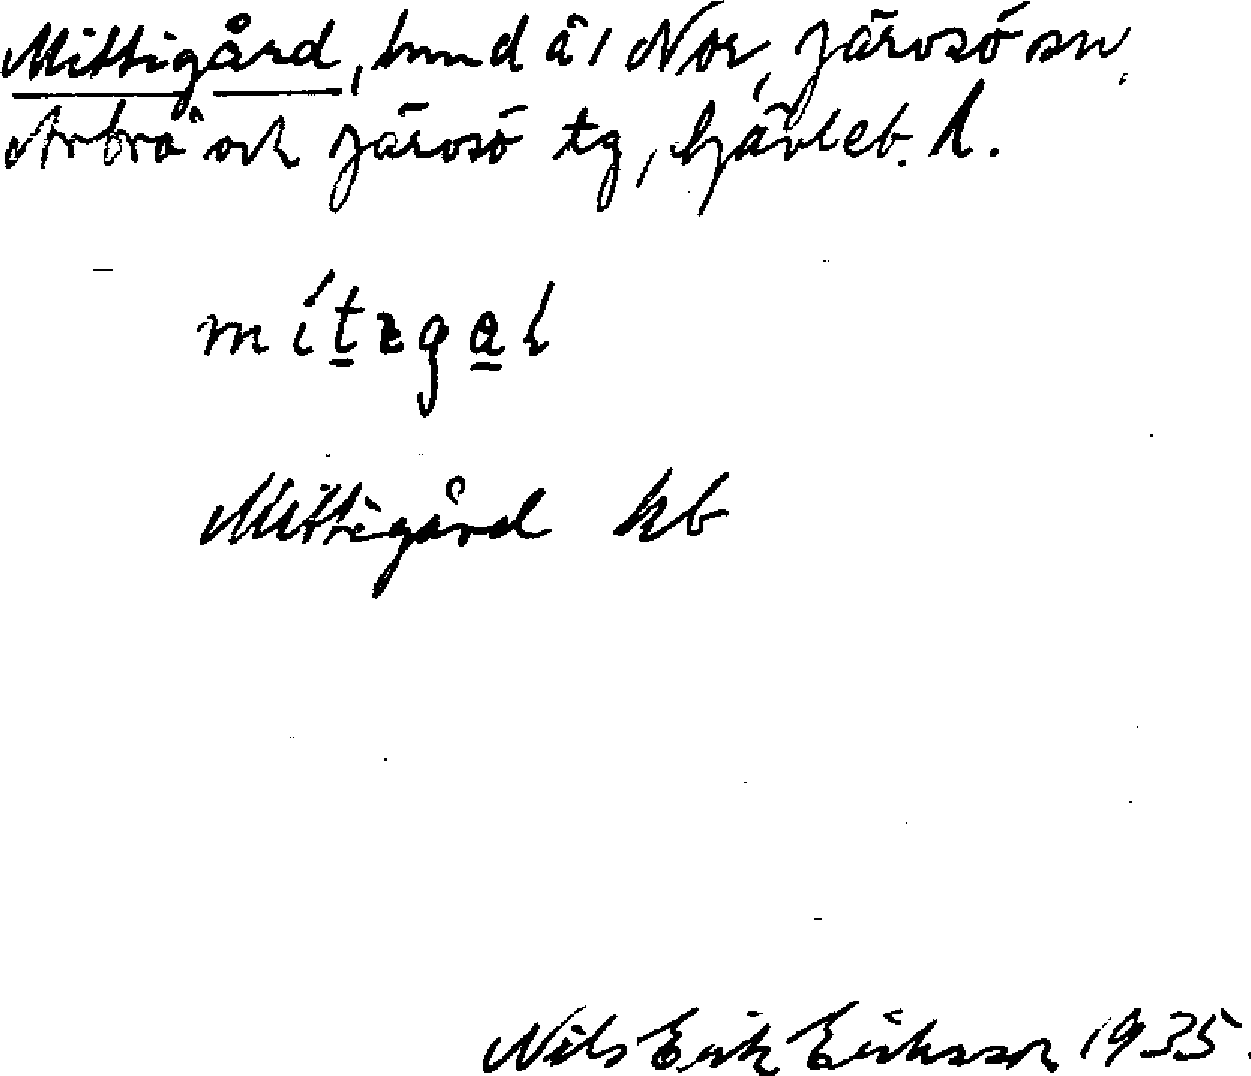 Mittigård, hmd å 1 Nor, Järvsö sn,
Arbrå och Järvsö tg, Gävleb. l.
Mittigård kb
Nils Erik Eriksson 1935.